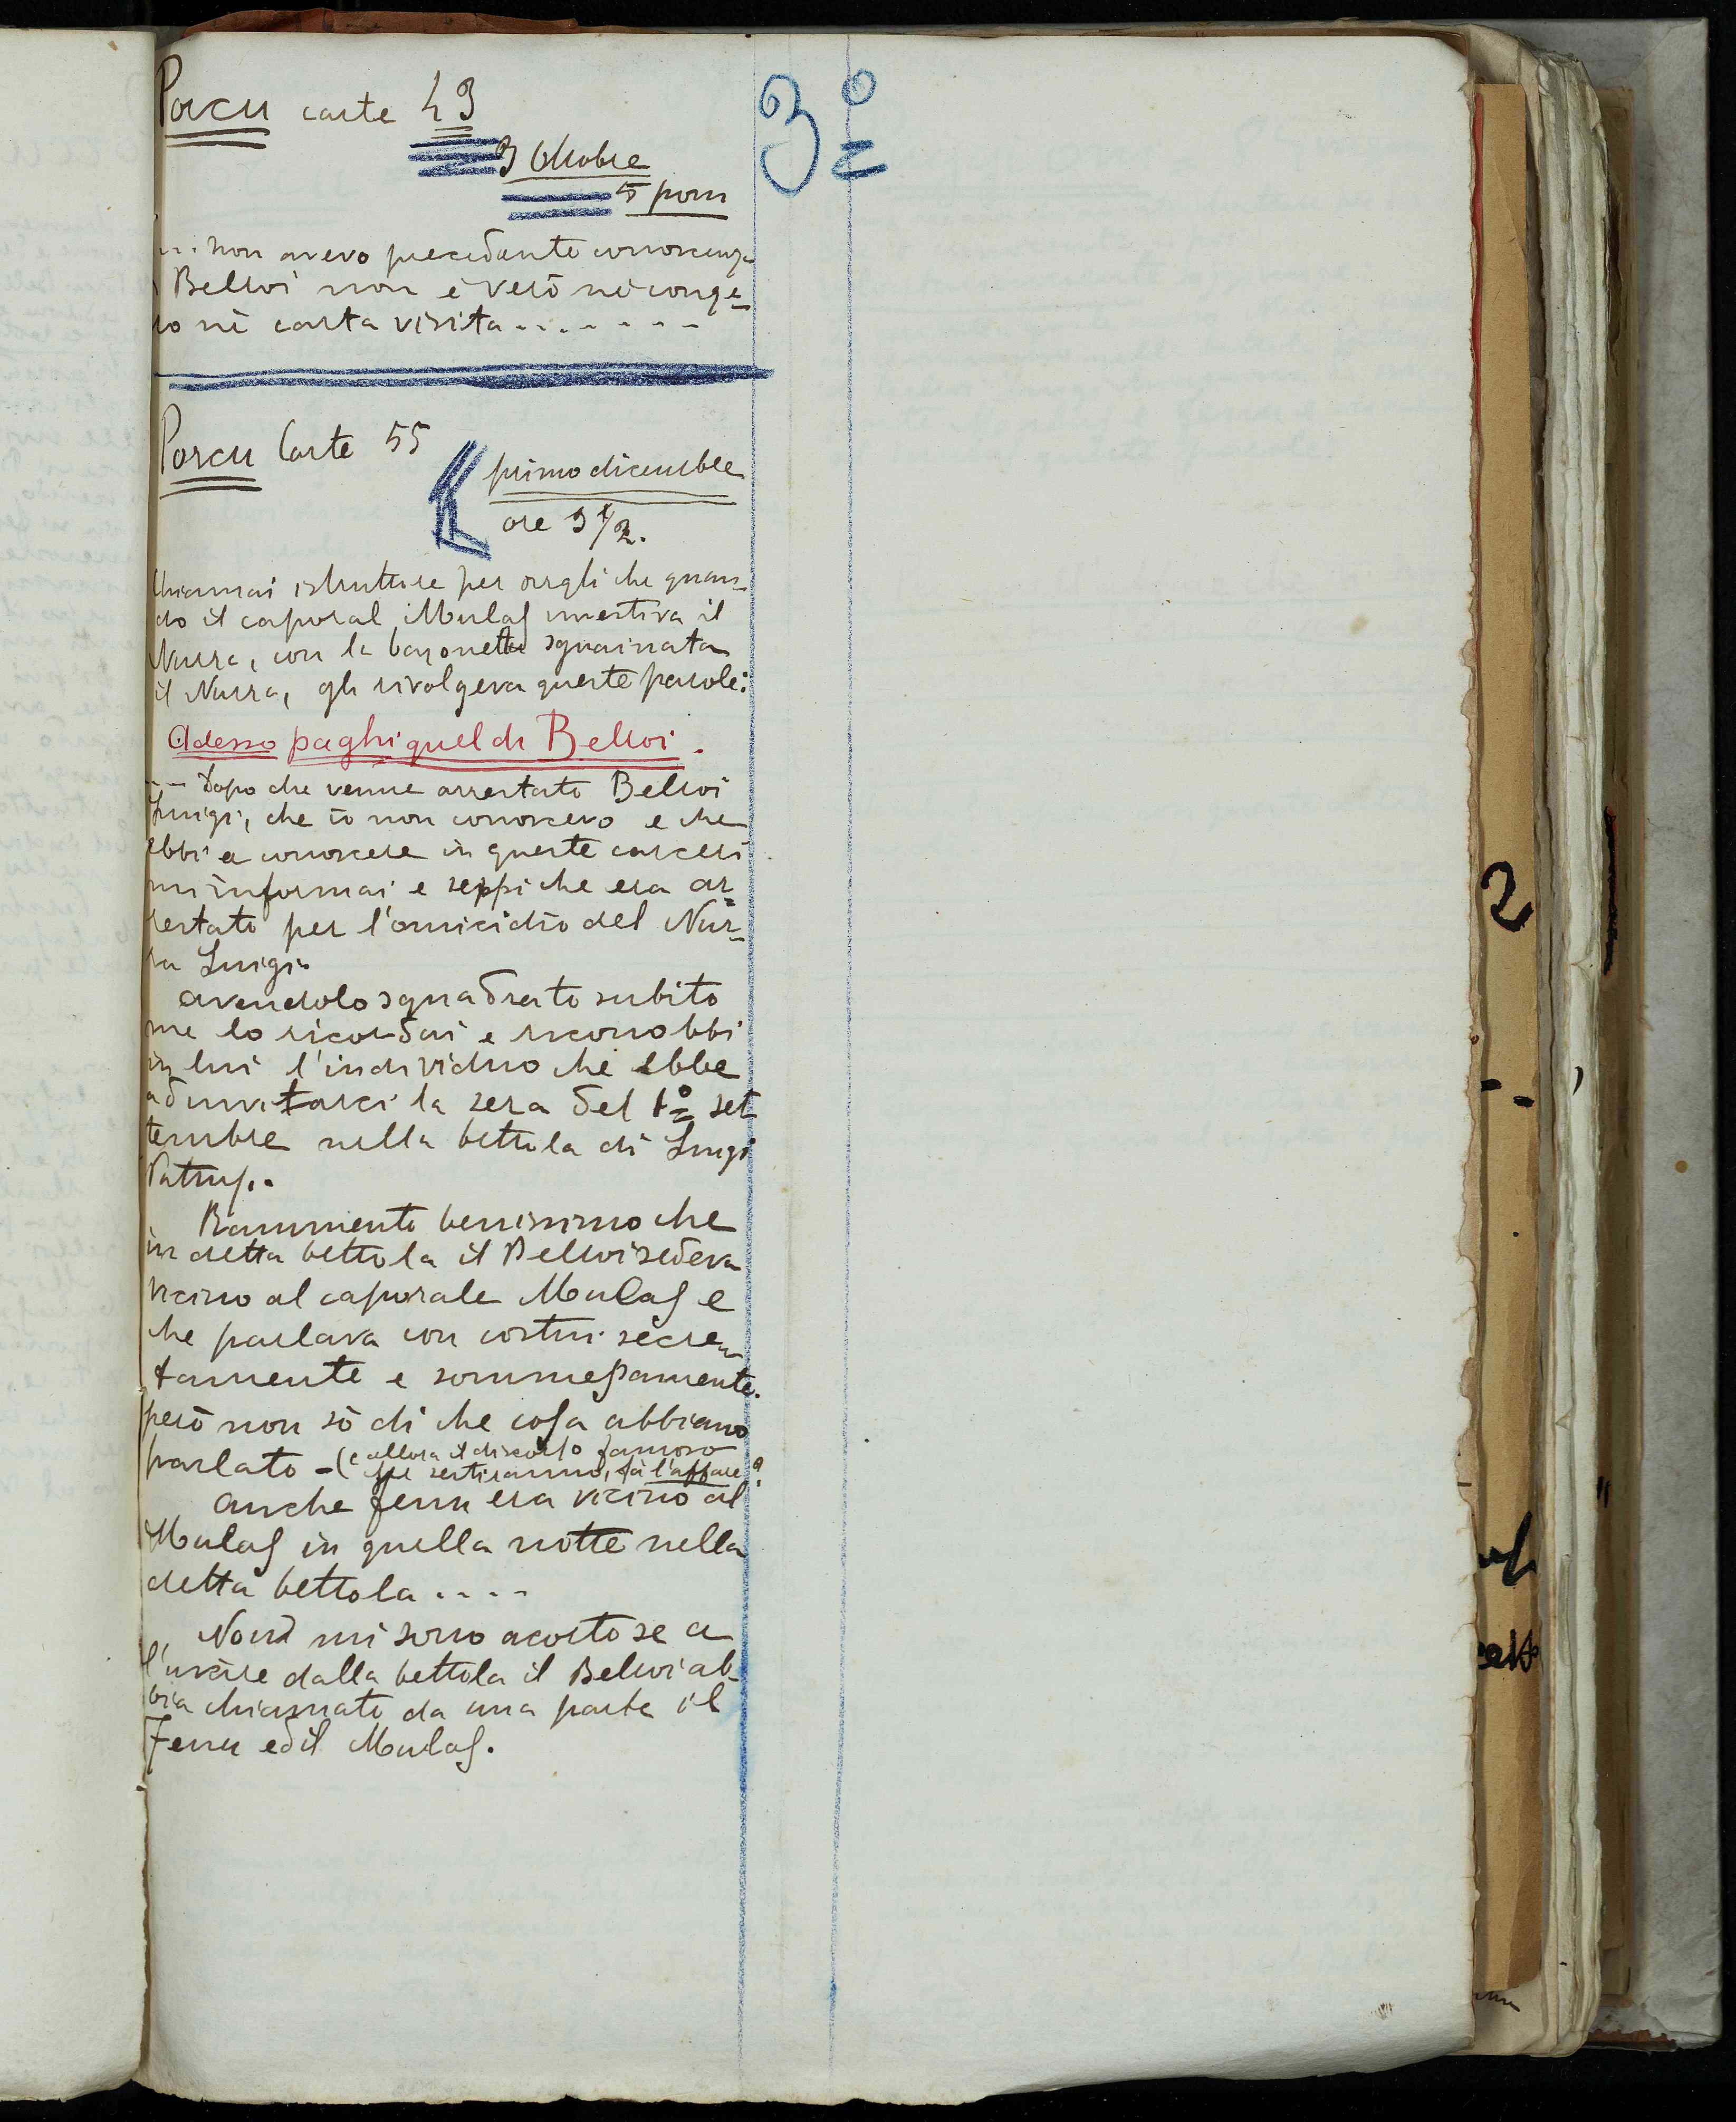 Porcu carte 43
3º
9 Ottobre
5 pom
... non avevo precedente conoscenza
Belloi non è vero nè conge=
do nè carta visita . . . . . . .
Porcu Carte 55
primo dicembre
ore 9 1/2.
Chiamai istruttore per dirgli che quan=
do il caporal Mulas investiva il
Nurra, con la bajonetta sguainata
il Nurra, gli rivolgeva queste parole:
Adesso paghi quel di Belloi.
... Dopo che venne arrestato Belloi
Luigi, che io non conoscevo e che
ebbi a conoscere in queste carceri
mi informai e seppi che era ar=
restato per l'omicidio del Nur=
ra Luigi.
avendolo squadrato subito
me lo ricordai e riconobbi
in lui l'individuo che ebbe
ad invitarci la sera del 1º set
tembre nella bettola di Luigi
Patrus.
Rammento benissimo che
in detta bettola il Belloi sedeva
vicino al caporale Mulas e
che parlava con costui secre=
tamente e sommessamente.
però non sò di che cosa abbiano
parlato - (e allora il discorso famoso
se sentiranno, fà l'affare?
anche Ferru era vicino al
Mulas in quella notte nella
detta bettola . . . .
Non mi sono acorto se a
l'uscire dalla bettola il Belloi ab=
bia chiamato da una parte il
Ferru ed il Mulas.
2